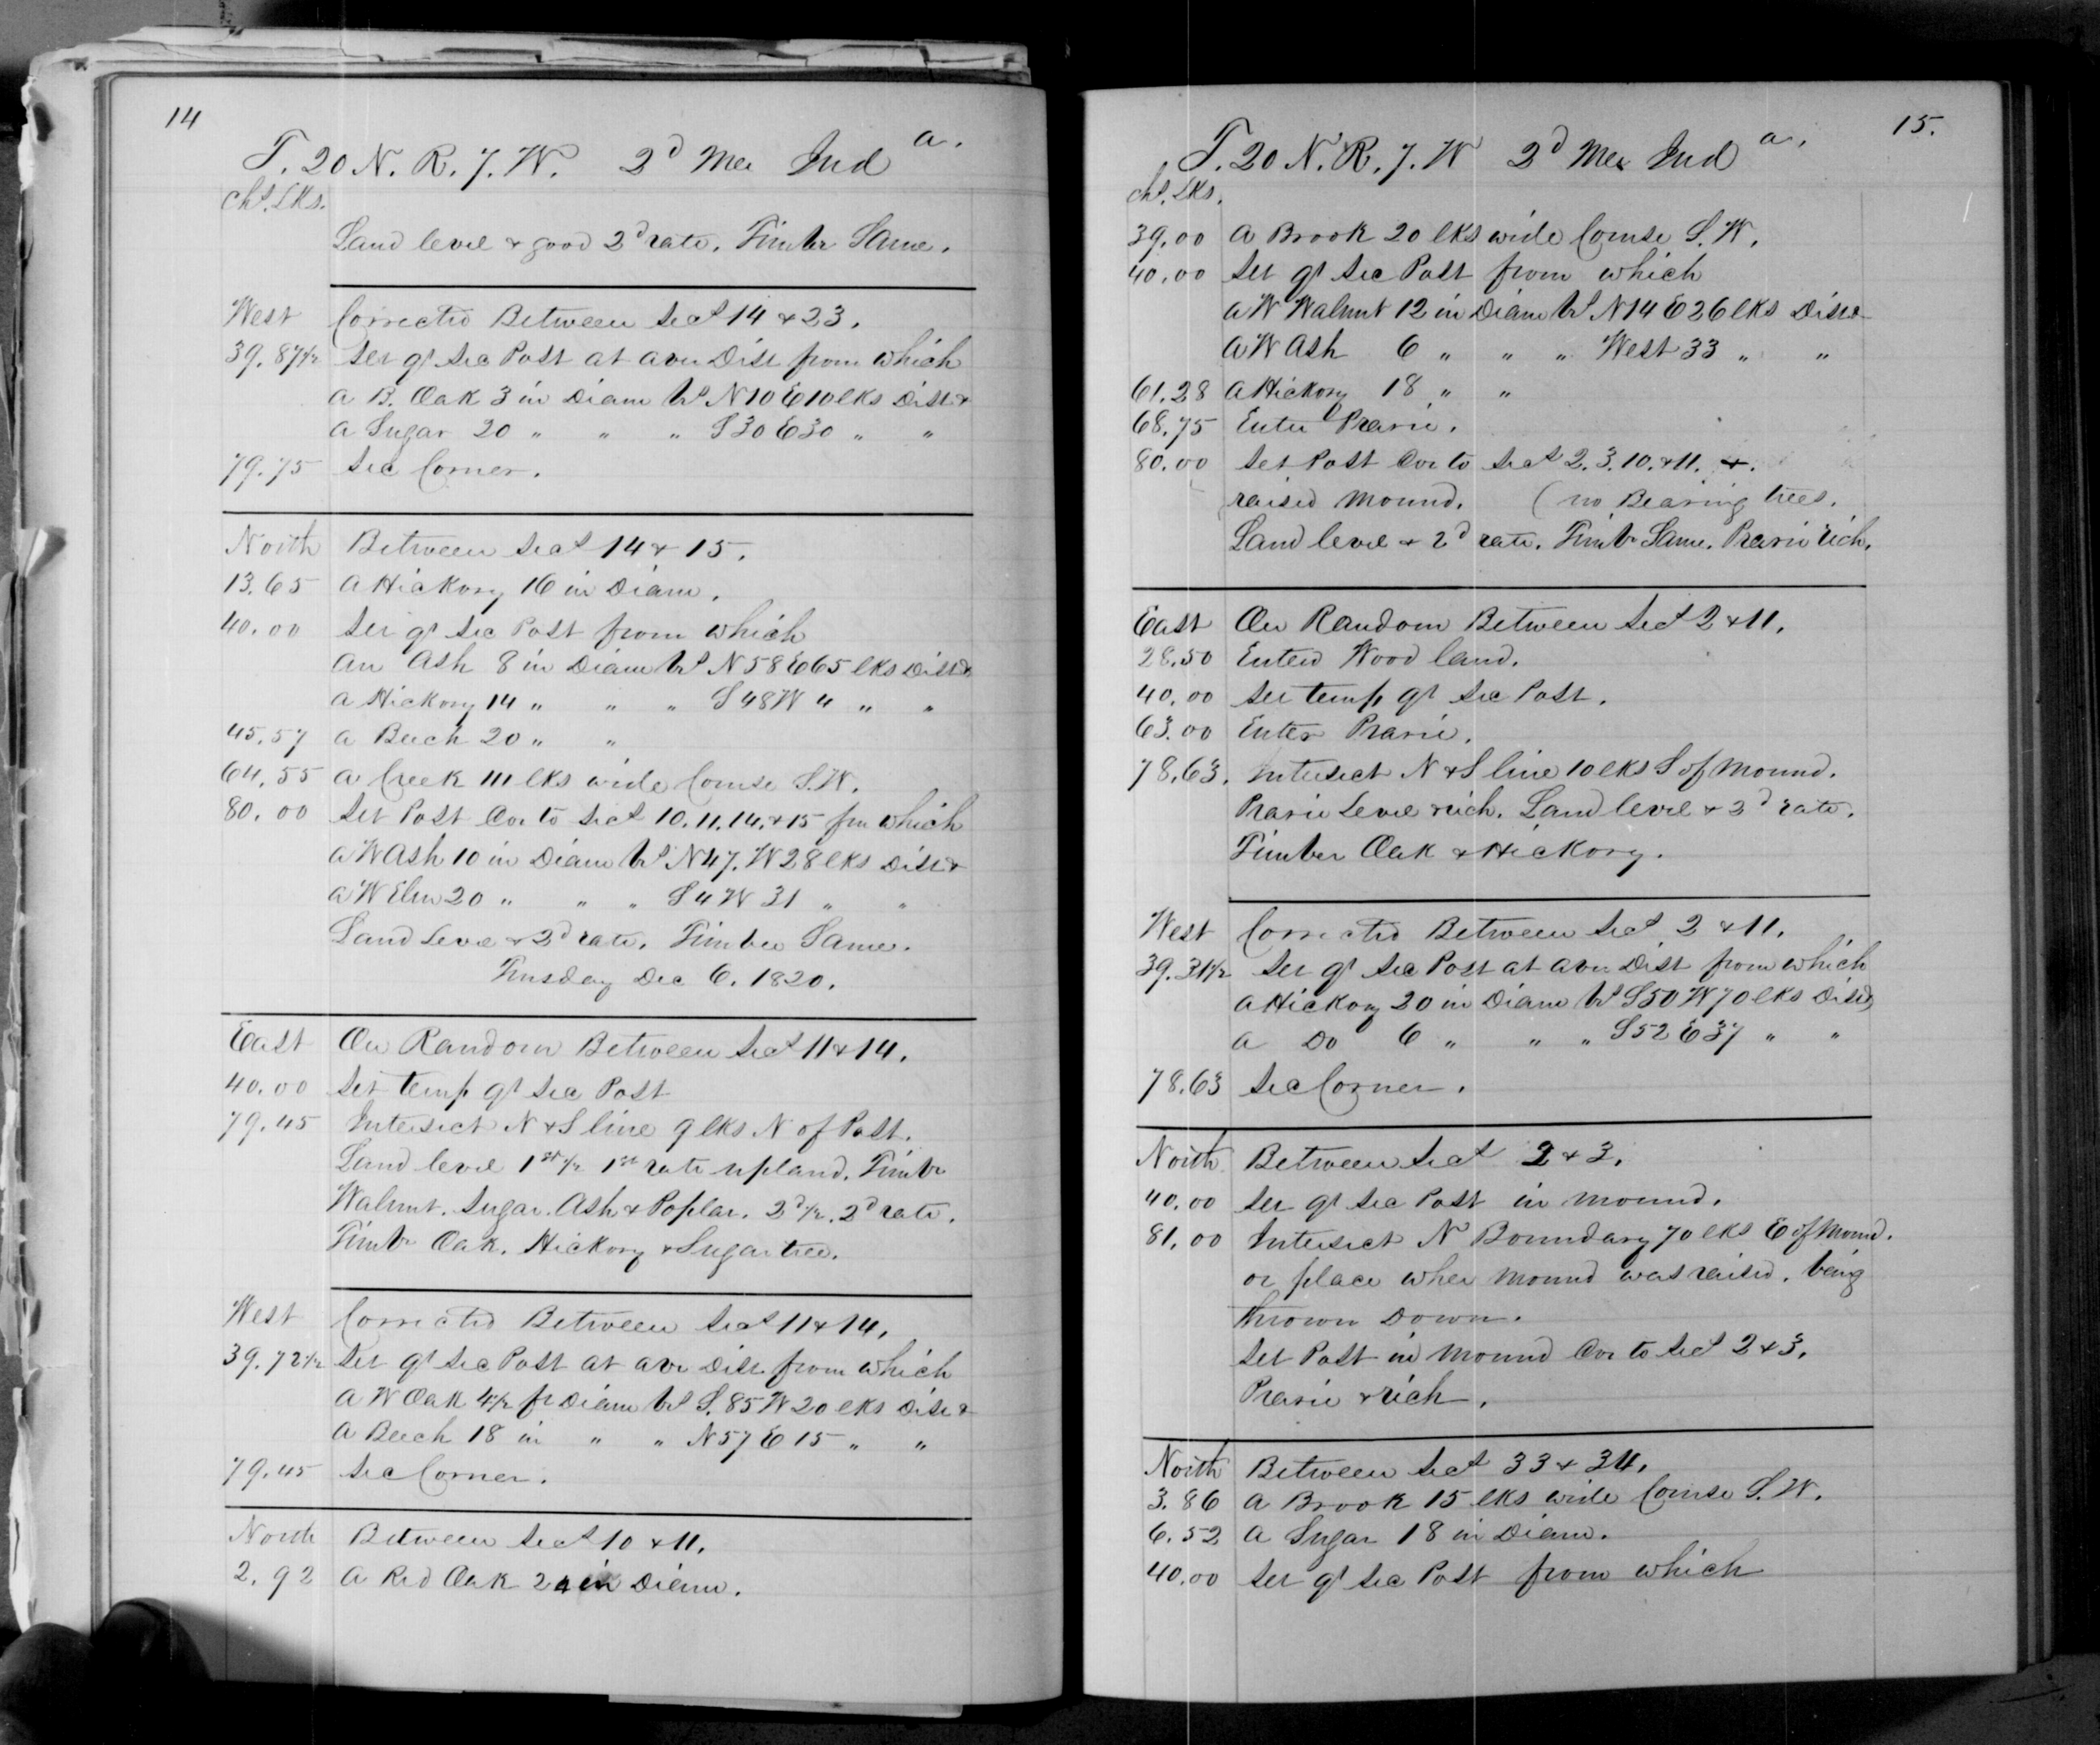 14
T. 20 N. R. 7. W. 2d Mer Inda.
Chs. Lks.
Land level & good 2d rate. Timber Same.
West Corrected Between Secs 14 & 23.
39.87½ Set qr Sec Post at aver Dist from which
a B. Oak 3 in Diam brs N10 E10 lks Dist &
a Sugar 20 " " " S30 E30 " "
79.75 Sec Corner.
North Between Secs 14 & 15.
13.65 a Hickory 16 in Diam.
40.00 Set qr Sec Post from which
an Ash 8 in Diam brs N58 E65 lks Dist &
a Hickory 14 " " " S48W 4 " "
45.57 a Beech 20 " "
64.55 a Creek 111 lks wide Course S.W.
80.00 Set Post Cor to Secs 10.11.14. & 15 fm which
a W Ash 10 in Diam brs N47. W28 lks Dist &
a W Elm 20 " " " S4W 31 " "
Land Level & 2d rate. Timber Same.
Tuesday Dec 6. 1820.
East On Random Between Secs 11 & 14.
40.00 Set temp qr Sec Post
79.45 Intersect N & S line 9 lks N of Post.
Land level 1st ½ 1st rate upland. Timbr
Walnut. Sugar. Ash & Poplar. 2d ½. 2d rate.
Timbr Oak. Hickory & Sugar tree.
West Corrected Between Secs 11 & 14.
39.72½ Set qr Sec Post at aver Dist. from which
a W Oak 4½ ft Diam brs S. 85 W 20 lks Dist &
a Beech 18 in " " N57 E 15 " "
79.45 Sec Corner.
North Between Secs 10 & 11.
2.92 a Red Oak 24 in Diam.
15.
T. 20 N. R. 7. W 2d Mer Inda.
chs. Lks.
39.00 a Brook 20 lks wide Course S. W.
40.00 Set qr Sec Post from which
a W Walnut 12 in Diam brs N14 E26 lks Dist &
a W Ash 6 " " " West 33 " "
61.28 a Hickory 18 " "
68.75 Enter Prarie.
80.00 Set Post Cor to Secs 2.3.10. & 11. &.
raised mound. (no Bearing trees.
Land level & 2d rate. Timbr Same. Prarie rich.
East On Random Between Secs 2 & 11.
28.50 Enterd Wood land.
40.00 Set temp qr Sec Post.
63.00 Enter Prarie.
78.63. Intersect N & S line 10 lks S of Mound.
Prarie Level & rich. Land level & 2d rate.
Timber Oak & Hickory.
West Corrected Between Secs 2 & 11.
39.31½ Set qr Sec Post at aver Dist from which
a Hickory 20 in Diam brs S50 W70 lks Dist &
a Do 6 " " " S52 E37 " "
78.63 Sec Corner.
North Between Secs 2 & 3.
40.00 Set qr Sec Post in mound.
81.00 Intersect N Boundary 70 lks E of Mound.
or place wher mound was raised. being
thrown Down.
Set Post in mound Cor to Secs 2 & 3.
Prarie & rich.
North Between Secs 33 & 34.
3.86 a Brook 15 lks wide Course S. W.
6.52 a Sugar 18 in Diam.
40.00 Set qr Sec Post from which